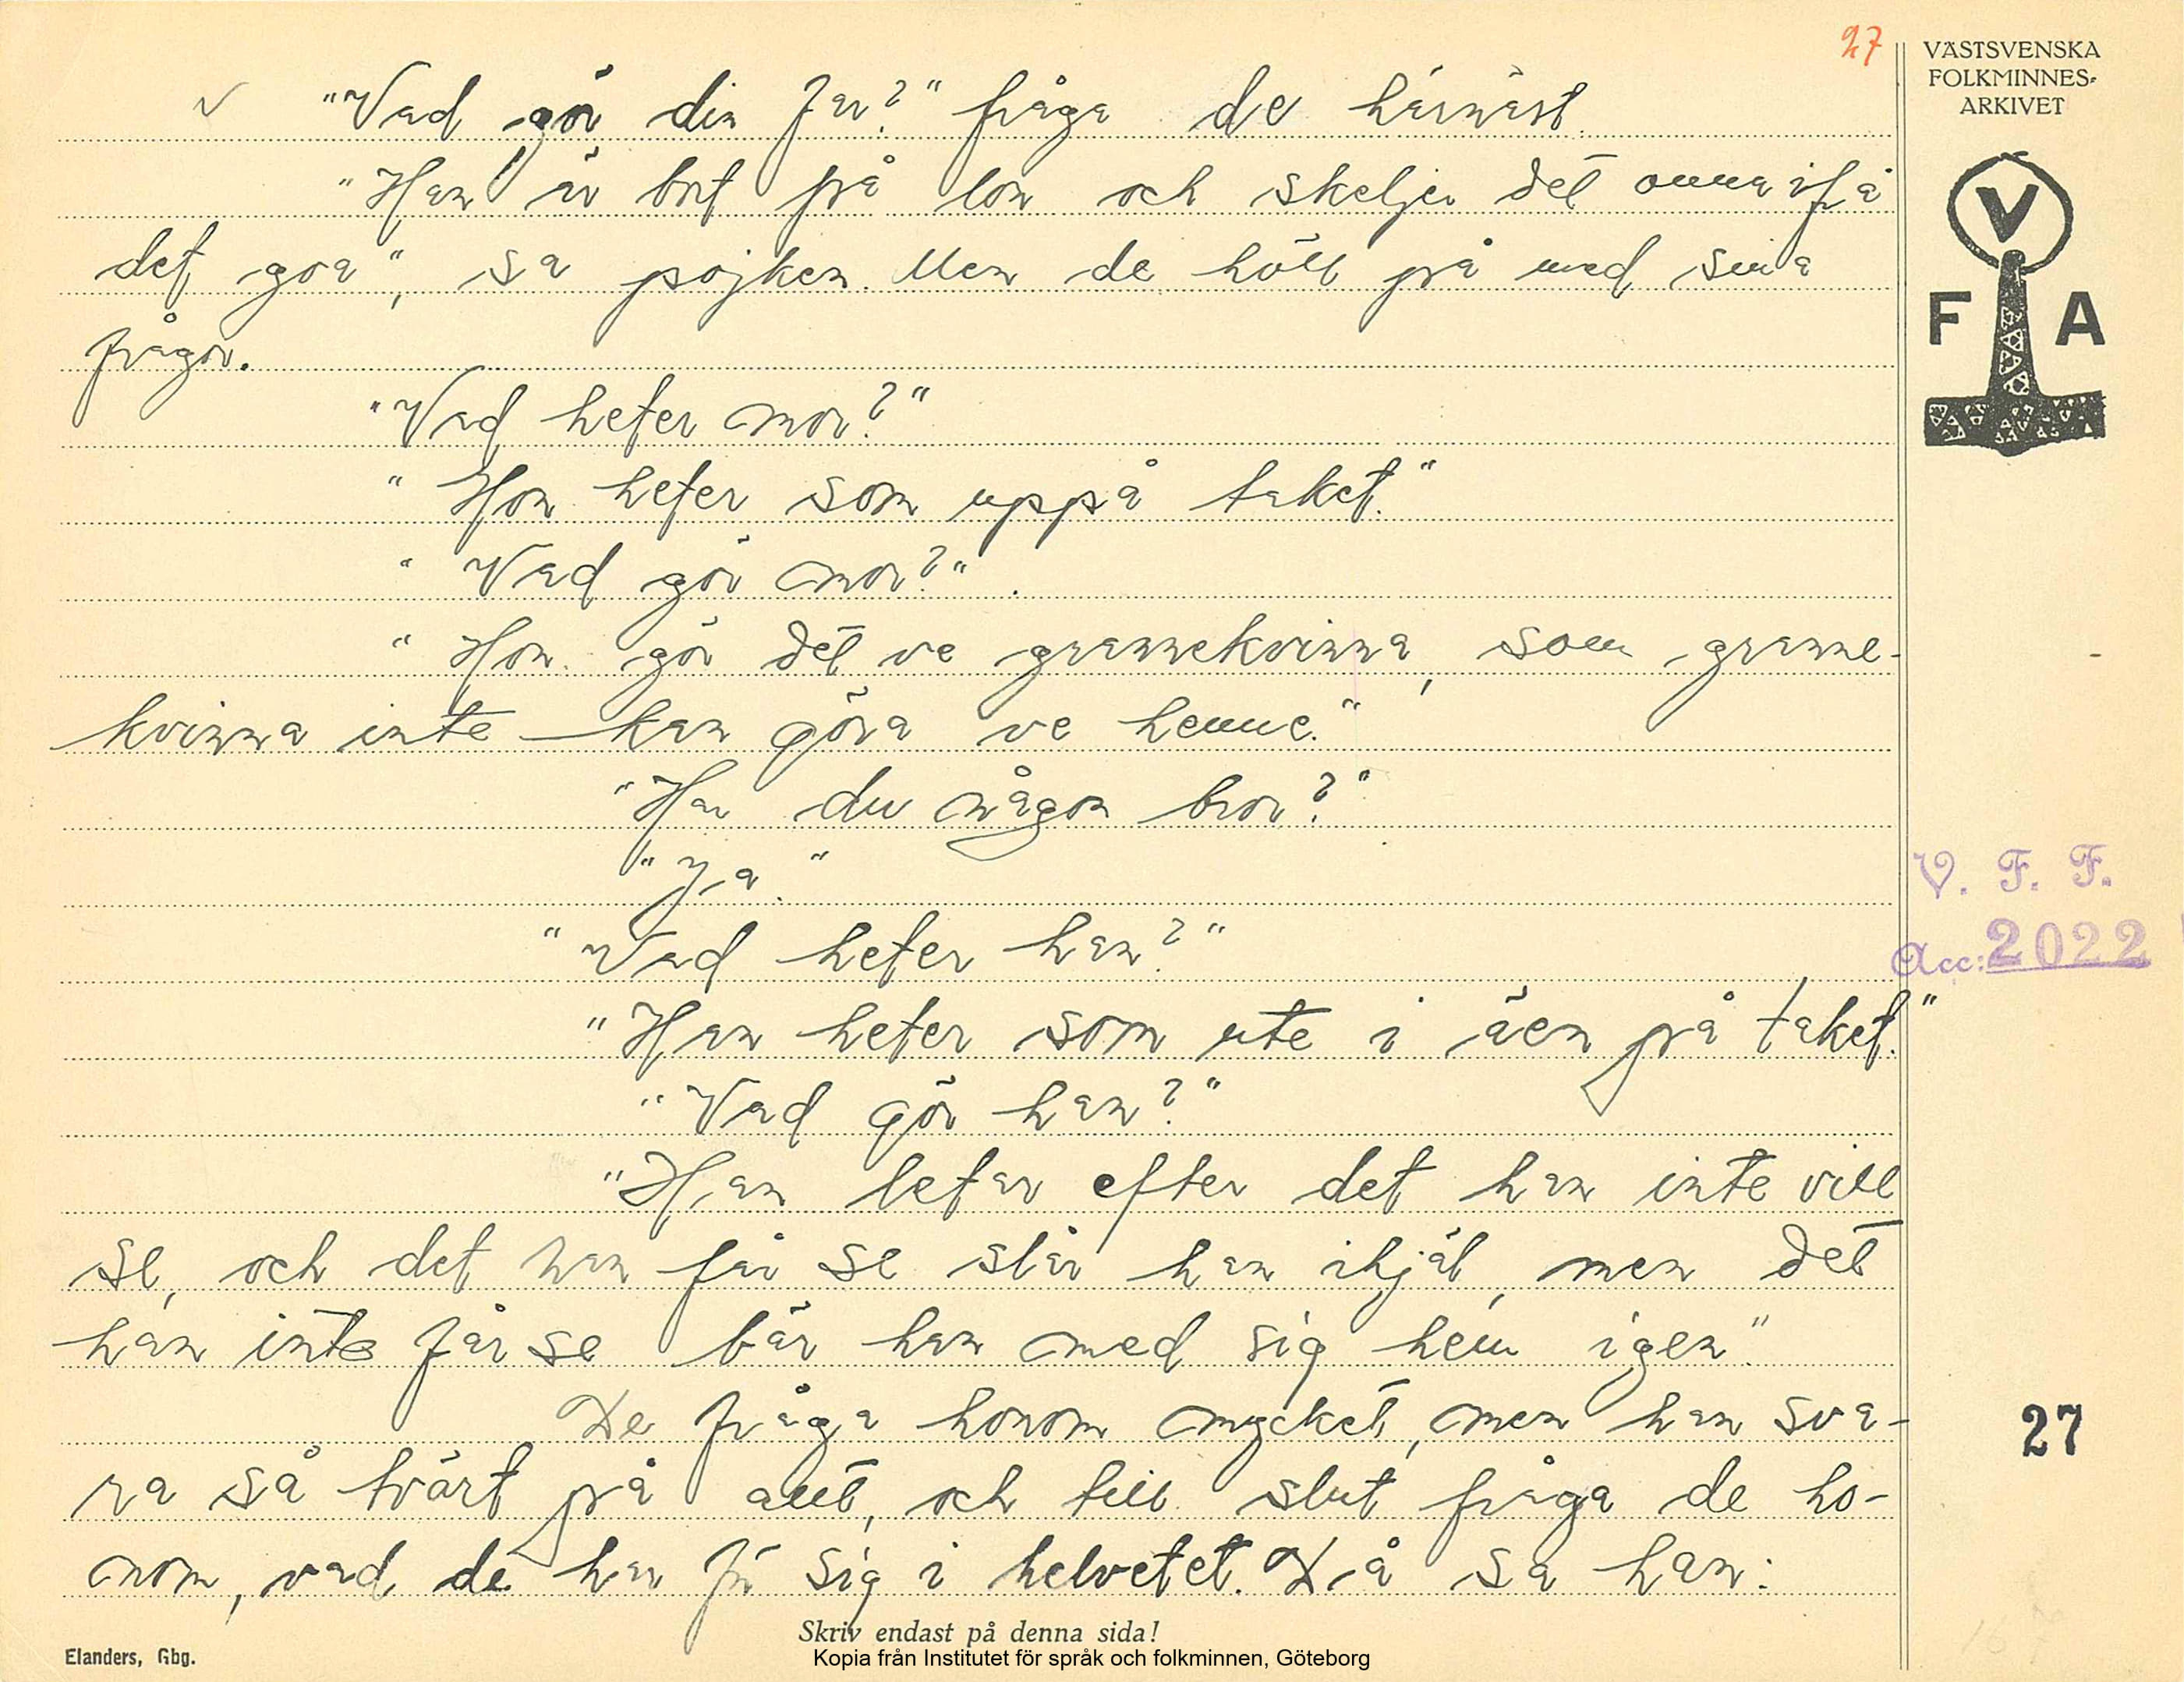 27
VÄSTSVENSKA
FOLKMINNES-
ARKIVET
V
F A
"Vad gör din far?" fråga de härnäst.
"Han är bort på lon och skeljer det onna ifrå
det goa", sa pojken. Men de höll på med sina
frågor.
"Vad heter mor?"
"Hon heter som uppå taket."
"Vad gör mor?"
"Hon gör det ve grannekvinna, som granne-
kvinna inte kan göra ve henne."
"Har du någon bror?"
"Ja."
V. F. F.
"Vad heter han?"
Acc: 2022
"Han heter som ute i åen på taket."
"Vad gör han?"
"Han letar efter det han inte vill
se, och det han får se slår han ihjäl, men det
han inte får se bär han med sig hem igen."
De fråga honom mycket, men han sva-
27
ra så tvärt på allt, och till slut fråga de ho-
nom, vad de har för sig i helvetet. Då sa han:
Skriv endast på denna sida!
Elanders, Gbg.
Kopia från Institutet för språk och folkminnen, Göteborg